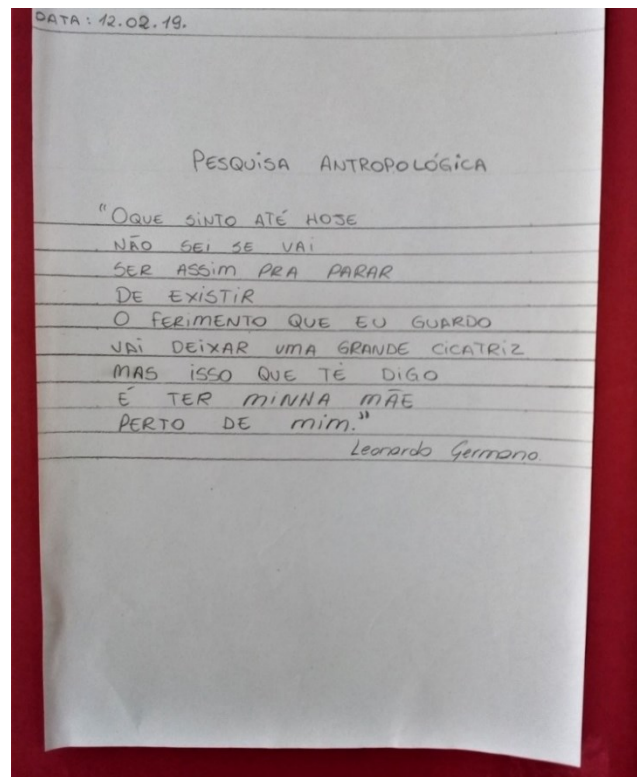 DATA: 12.02.19.
PESQUISA ANTROPOLÓGICA
"OQUE SINTO ATÉ HOJE
NÃO SEI SE VAI
SER ASSIM PRA PARAR
DE EXISTIR
O FERIMENTO QUE EU GUARDO
VAI DEIXAR UMA GRANDE CICATRIZ
MAS ISSO QUE TE DIGO
É TER MINHA MÃE
PERTO DE MIM."
Leonardo Germano.